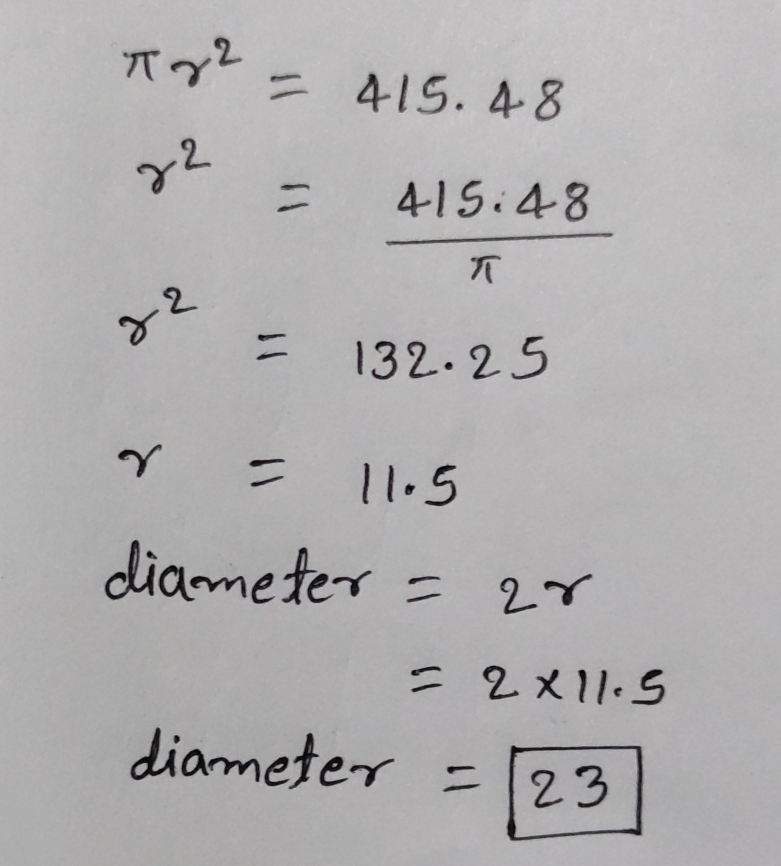 πr² = 415.48
r² = 415.48/π
r² = 132.25
r = 11.5
diameter = 2r
= 2×11.5
diameter = 23